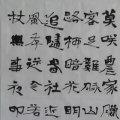 莫咲農家臘
客足雞豚山
路柳暗花明
追隨春社近
風存從今若
杖無時夜叩